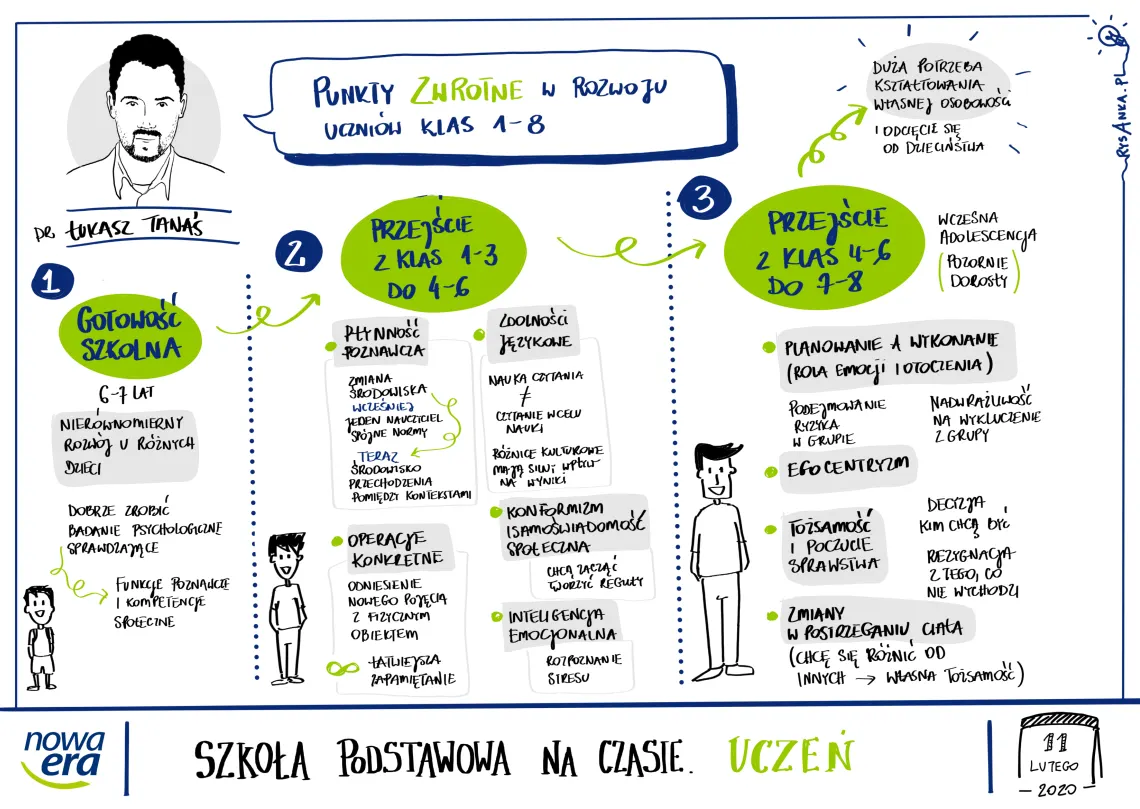 PUNKTY ZWROTNE W ROZWOJU
UCZNIÓW KLAS 1-8
DR ŁUKASZ TANAŚ
1
GOTOWOŚĆ
SZKOLNA
6-7 LAT
NIERÓWNOMIERNY
ROZWÓJ U RÓŻNYCH
DZIECI
DOBRZE ZROBIĆ
BADANIE PSYCHOLOGICZNE
SPRAWDZAJĄCE
FUNKCJE POZNAWCZE
I KOMPETENCJE
SPOŁECZNE
2
PRZEJŚCIE
Z KLAS 1-3
DO 4-6
PŁYNNOŚĆ
POZNAWCZA
ZMIANA
ŚRODOWISKA
WCZEŚNIEJ
JEDEN NAUCZYCIEL
SPÓJNE NORMY
TERAZ
ŚRODOWISKO
PRZECHODZENIA
POMIĘDZY KONTEKSTAMI
OPERACJE
KONKRETNE
ODNIESIENIE
NOWEGO POJĘCIA
Z FIZYCZNYM
OBIEKTEM
ŁATWIEJSZA
ZAPAMIĘTANIE
ZDOLNOŚCI
JĘZYKOWE
NAUKA CZYTANIA
≠
CZYTANIE W CELU
NAUKI
RÓŻNICE KULTUROWE
MAJĄ SILNY WPŁYW
NA WYNIKI
KONFORMIZM
I SAMOŚWIADOMOŚĆ
SPOŁECZNA
CHCĄ ZACZĄĆ
TWORZYĆ REGUŁY
INTELIGENCJA
EMOCJONALNA
ROZPOZNANIE
STRESU
3
PRZEJŚCIE
Z KLAS 4-6
DO 7-8
DUŻA POTRZEBA
KSZTAŁTOWANIA
WŁASNEJ OSOBOWOŚCI
I ODCIĘCIE SIĘ
OD DZIECIŃSTWA
WCZESNA
ADOLESCENCJA
(POZORNIE
DOROSŁY)
PLANOWANIE A WYKONANIE
(ROLA EMOCJI I OTOCZENIA)
PODEJMOWANIE
RYZYKA
W GRUPIE
NADWRAŻLIWOŚĆ
NA WYKLUCZENIE
Z GRUPY
EGOCENTRYZM
TOŻSAMOŚĆ
I POCZUCIE
SPRAWSTWA
DECYZJA
KIM CHCĄ BYĆ
REZYGNACJA
Z TEGO, CO
NIE WYCHODZI
ZMIANY
W POSTRZEGANIU CIAŁA
(CHCĘ SIĘ RÓŻNIĆ OD
INNYCH → WŁASNA TOŻSAMOŚĆ)
RYSANKA.PL
nowa
era
SZKOŁA PODSTAWOWA NA CZASIE. UCZEŃ
11
LUTEGO
- 2020 -